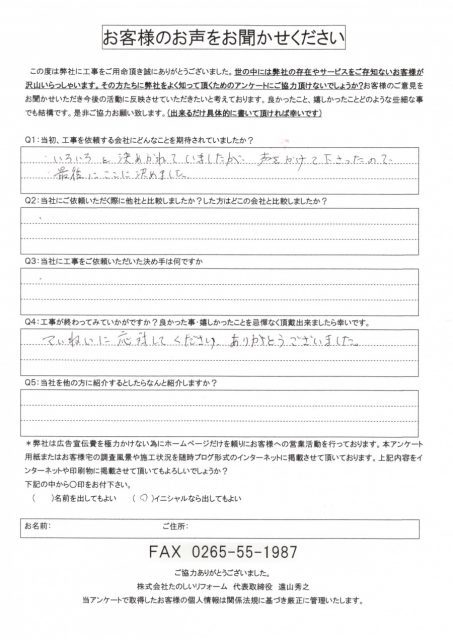 お客様のお声をお聞かせください
この度は弊社に工事をご用命頂き誠にありがとうございました。世の中には弊社の存在やサービスをご存知ないお客様が
沢山いらっしゃいます。その方たちに弊社をよく知って頂くためのアンケートにご協力頂けないでしょうか?お客様のご意見を
お聞かせいただき今後の活動に反映させていただきたいと考えております。良かったこと、嬉しかったことどのような些細な事
でも結構です。是非ご協力お願い致します。(出来るだけ具体的に書いて頂ければ幸いです)
Q1:当初、工事を依頼する会社にどんなことを期待されていましたか?
いろいろと決めかねていましたが 声をかけて下さったので
最後にここに決めました
Q2:当社にご依頼いただく際に他社と比較しましたか?した方はどこの会社と比較しましたか?
Q3:当社に工事をご依頼いただいた決め手は何ですか
Q4:工事が終わってみていかがですか?良かった事・嬉しかったことを忌憚なく頂戴出来ましたら幸いです。
ていねいに応対してくださり、ありがとうございました。
Q5:当社を他の方に紹介するとしたらなんと紹介しますか?
*弊社は広告宣伝費を極力かけない為にホームページだけを頼りにお客様への営業活動を行っております。本アンケート
用紙またはお客様宅の調査風景や施工状況を随時ブログ形式のインターネットに掲載させて頂いております。上記内容をイ
ンターネットや印刷物に掲載させて頂いてもよろしいでしょうか?
下記の中から〇印をお付下さい。
( )名前を出してもよい (〇)イニシャルなら出してもよい
お名前: ご住所:
FAX 0265-55-1987
ご協力ありがとうございました。
株式会社たのしいリフォーム 代表取締役 遠山秀之
当アンケートで取得したお客様の個人情報は関係法規に基づき厳正に管理いたします。